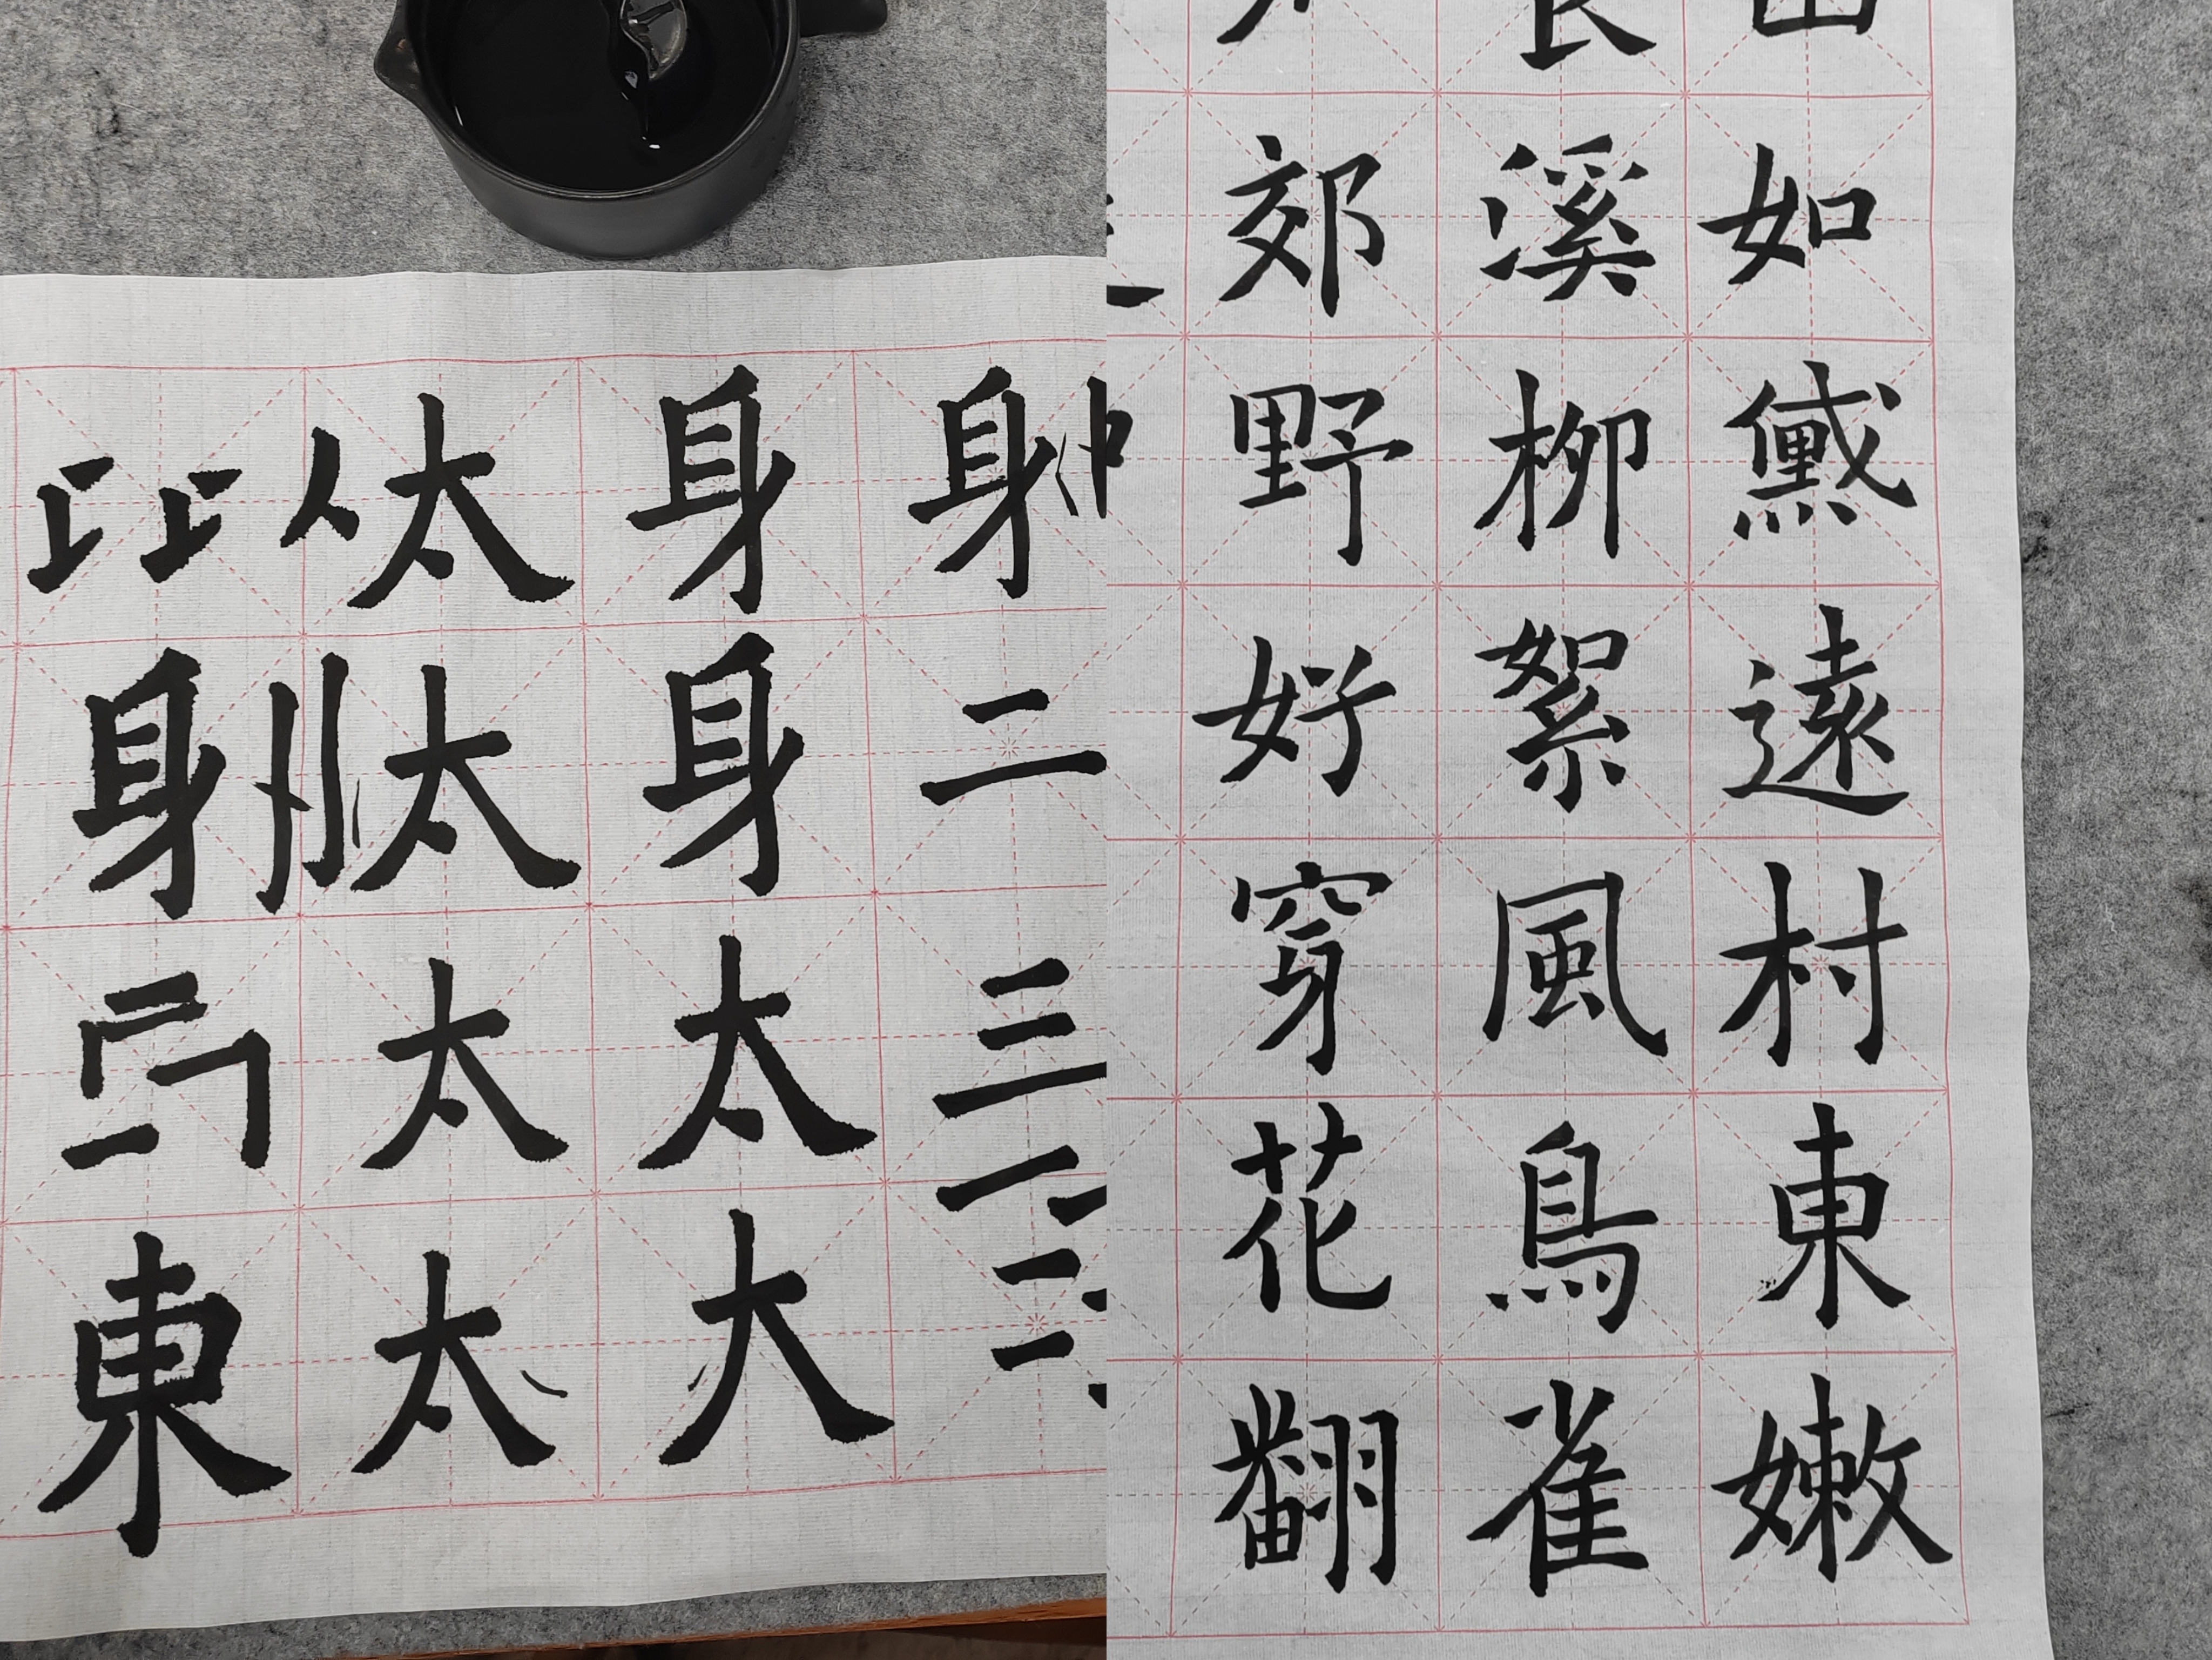 如黛遠村東嫩
溪柳絮風鳥雀
郊野好穿花翻
身二三
身身太大
太太太太
身東